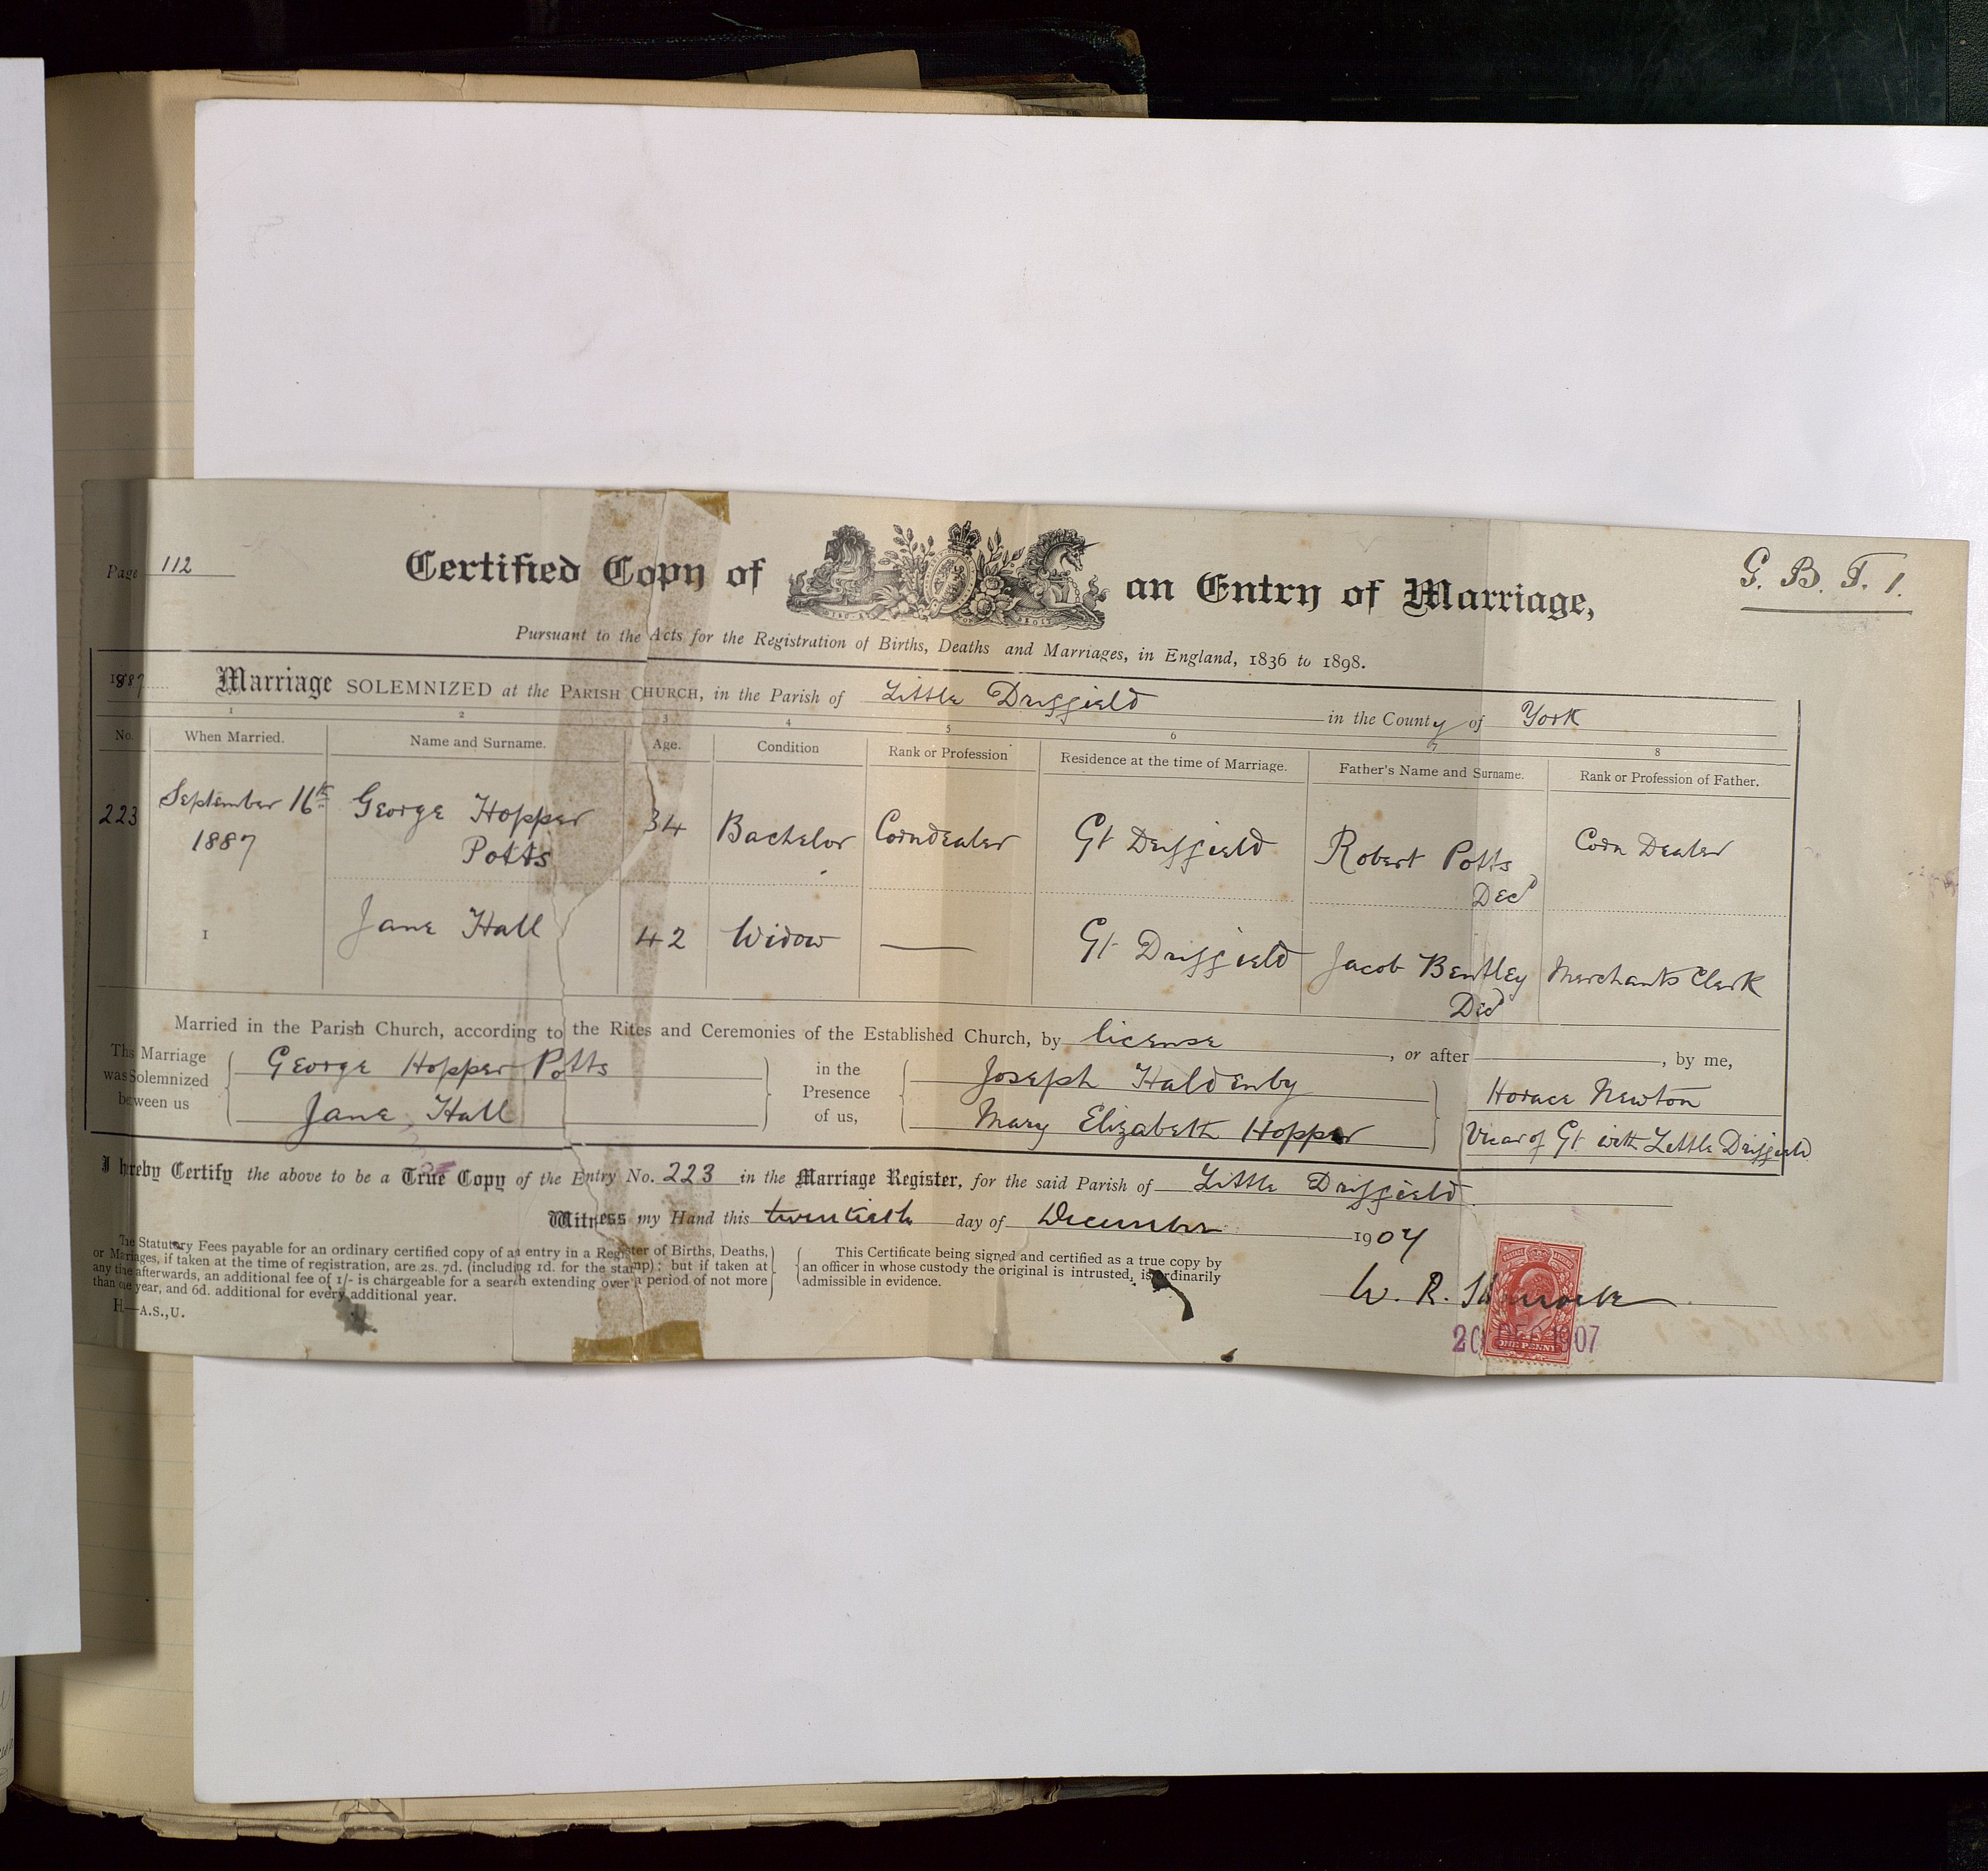 Page 112
Certified Copy of an Entry of Marriage,
G. B. T. 1.
Pursuant to the Acts for the Registration of Births, Deaths and Marriages, in England, 1836 to 1898.
1887 Marriage SOLEMNIZED at the PARISH CHURCH, in the Parish of Little Driffield in the County of York
1 2 3 4 5 6 7 8
No. When Married. Name and Surname. Age. Condition Rank or Profession Residence at the time of Marriage. Father's Name and Surname. Rank or Profession of Father.
223 September 16th 1887 George Hopper Potts 34 Bachelor Corndealer Gt Driffield Robert Potts Decd Corn Dealer
1 Jane Hall 42 Widow — Gt Driffield Jacob Bentley Decd Merchants Clerk
Married in the Parish Church, according to the Rites and Ceremonies of the Established Church, by license, or after , by me,
This Marriage was Solemnized between us
George Hopper Potts
Jane Hall
in the Presence of us,
Joseph Haldenby
Mary Elizabeth Hopper
Horace Newton
Vicar of Gt with Little Driffield
I hereby Certify the above to be a True Copy of the Entry No. 223 in the Marriage Register, for the said Parish of Little Driffield.
Witness my Hand this twentieth day of December 1907
The Statutory Fees payable for an ordinary certified copy of an entry in a Register of Births, Deaths,
or Mariages, if taken at the time of registration, are 2s. 7d. (including 1d. for the stamp); but if taken at
any time afterwards, an additional fee of 1/- is chargeable for a search extending over a period of not more
than one year, and 6d. additional for every additional year.
H.—A.S.,U.
This Certificate being signed and certified as a true copy by
an officer in whose custody the original is intrusted, is ordinarily
admissible in evidence.
W. R.
20 DEC 1907
ONE PENNY